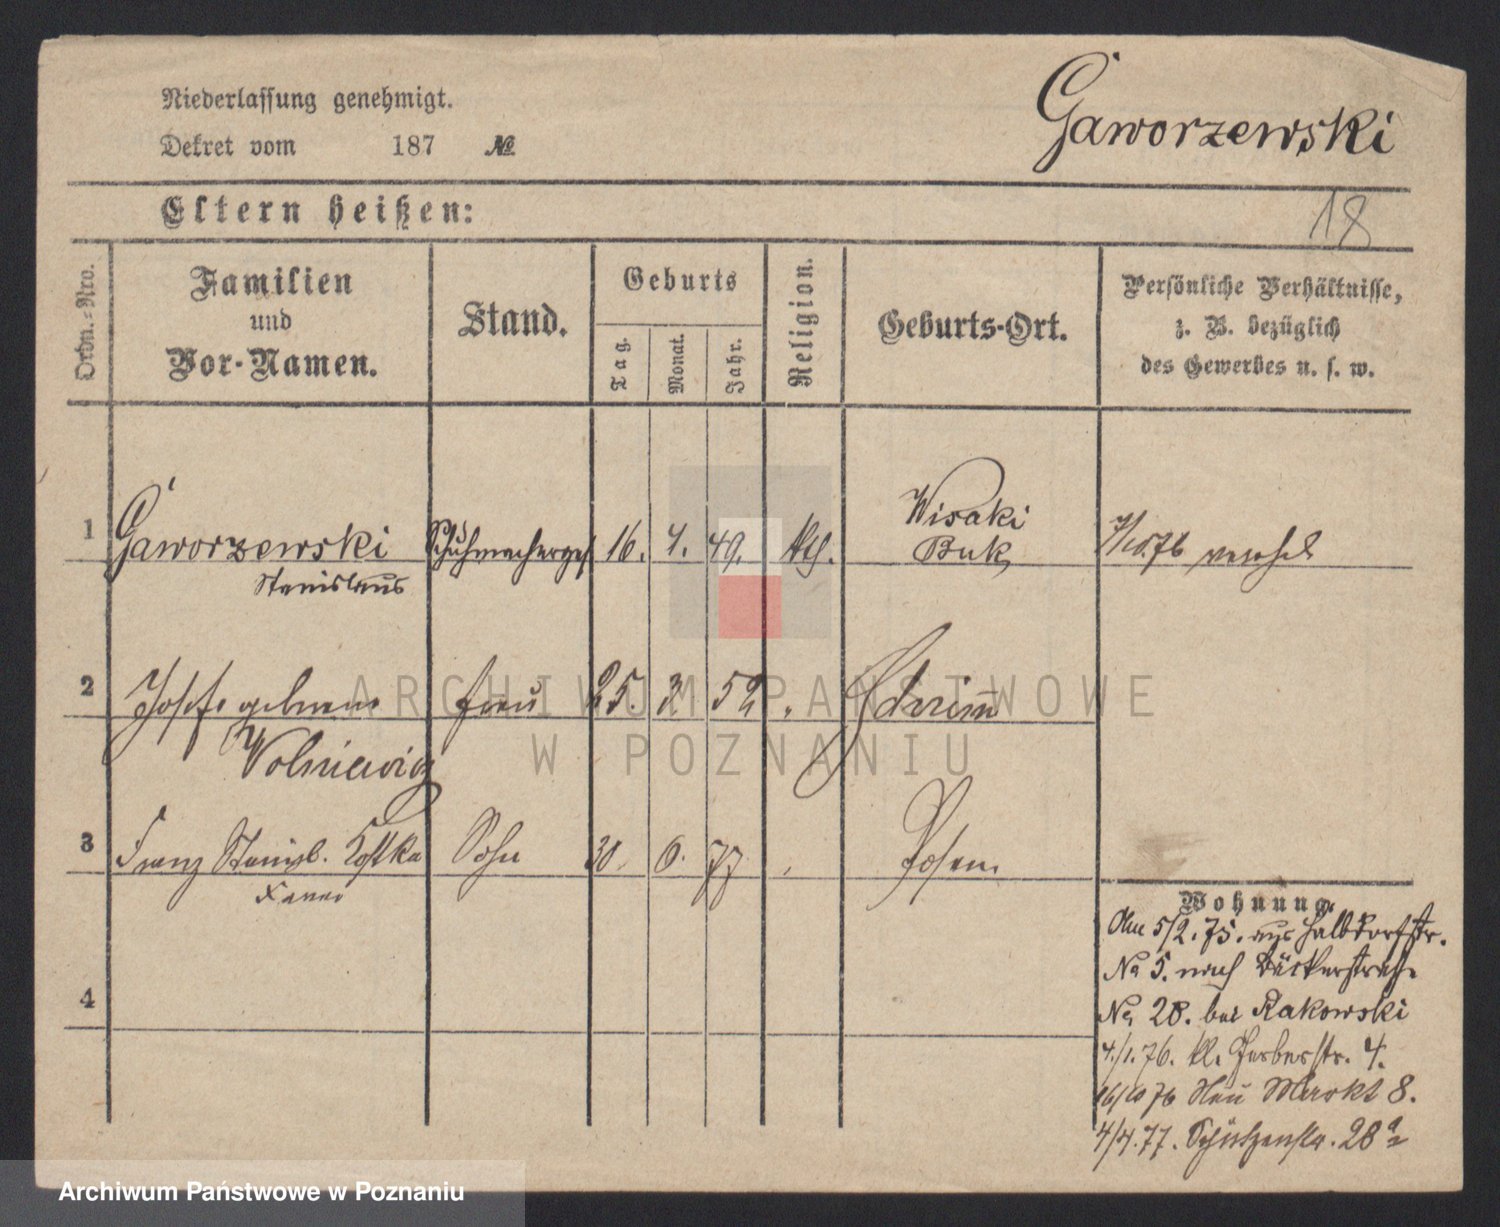 Niederlassung genehmigt.
Dekret vom 187 №
Gaworzewski
18
Eltern heißen:
Ordn.-Nro.
Familien
und
Vor-Namen.
Stand.
Geburts
Tag.
Monat.
Jahr.
Religion.
Geburts-Ort.
Persönliche Verhältnisse,
z. B. bezüglich
des Gewerbes u. s. w.
1 Gaworzewski Schuhmacherges. 16. 4. 49. kth. Wisaki
Buk 7/10.76
Stanislaus
2 Josefe geborene Frau 25. 3. 52
Wolniewicz
3 Franz Stanisl. Kostka Sohn 30. 6. 77 Posen
Xaver
4
Wohnung.
Am 5/2.75. aus Halbdorfstr.
No 5. nach Bäckerstraße
No 28. bei Rakowski
4./1.76. kl. Gerberstr. 4.
16/10 76 Neu Markt 8.
4/4.77. Schützenstr. 28a
ARCHIWUM PAŃSTWOWE
W POZNANIU
Archiwum Państwowe w Poznaniu